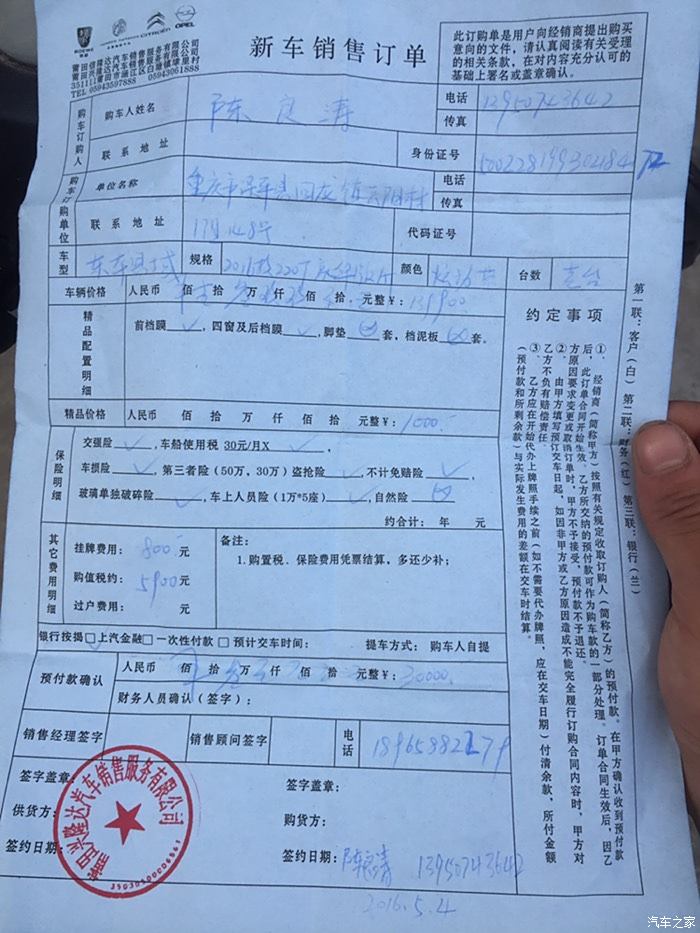 ROEWE CITROËN OPEL
TEL 05943597888 05943061888
新车销售订单
此订购单是用户向经销商提出购买
意向的文件，请认真阅读有关受理
的相关条款，在对内容充分认可的
基础上署名或盖章确认。
购车订购人
购车人姓名 陈良涛 电话 13950743642
传真
联系地址 身份证号
购车订购单位
单位名称 电话
传真
联系地址 代码证号
车型 规格 颜色 台数 壹台
车辆价格 人民币 佰 拾 万 仟 佰 拾 元整¥：139900
精品配置明细
前档膜 ✓，四窗及后档膜 ✓，脚垫 套，档泥板 套。
精品价格 人民币 佰 拾 万 仟 佰 拾 元整¥：1000
保险明细
交强险 ✓，车船使用税 30元/月X ✓，
车损险 ✓，第三者险（50万，30万）盗抢险 ✓，不计免赔险 ✓，
玻璃单独破碎险 ✓，车上人员险（1万*5座）✓，自然险
约合计： 年 元
其它费用明细
挂牌费用：800元
购值税约：5900元
过户费用： 元
备注：
1.购置税、保险费用凭票结算，多还少补；
银行按揭 □上汽金融 □一次性付款 □预计交车时间： 提车方式： 购车人自提
预付款确认 人民币 佰 拾 万 仟 佰 拾 元整¥：30000
财务人员确认（签字）：
销售经理签字 销售顾问签字 电话 18965882279
签字盖章： 签字盖章：
供货方： 购货方：
签约日期： 签约日期： 13950743642
2016.5.4
兴隆达汽车销售服务有限公司
约定事项
①、经销商（简称甲方）按照有关规定收取订购人（简称乙方）的预付款。在甲方确认收到预付款
后，此订单合同开始生效。乙方所交纳的预付款可作为购车款的一部分处理。订单合同生效后，因乙
方原因要求变更或取消订单时，甲方不予接受，预付款不予退还。
②、由甲方填写预订交车日起，如因非甲方或乙方原因造成不能完全履行订购合同内容时，甲方对
乙方不负有赔偿责任。
③、乙方应在开始代办上牌照手续之前（如不需要代办牌照，应在交车日期）付清余款，所付金额
（预付款和所剩余款）与实际发生费用的差额在交车时结算。
第一联：客户（白） 第二联：财务（红） 第三联：银行（兰）
汽车之家